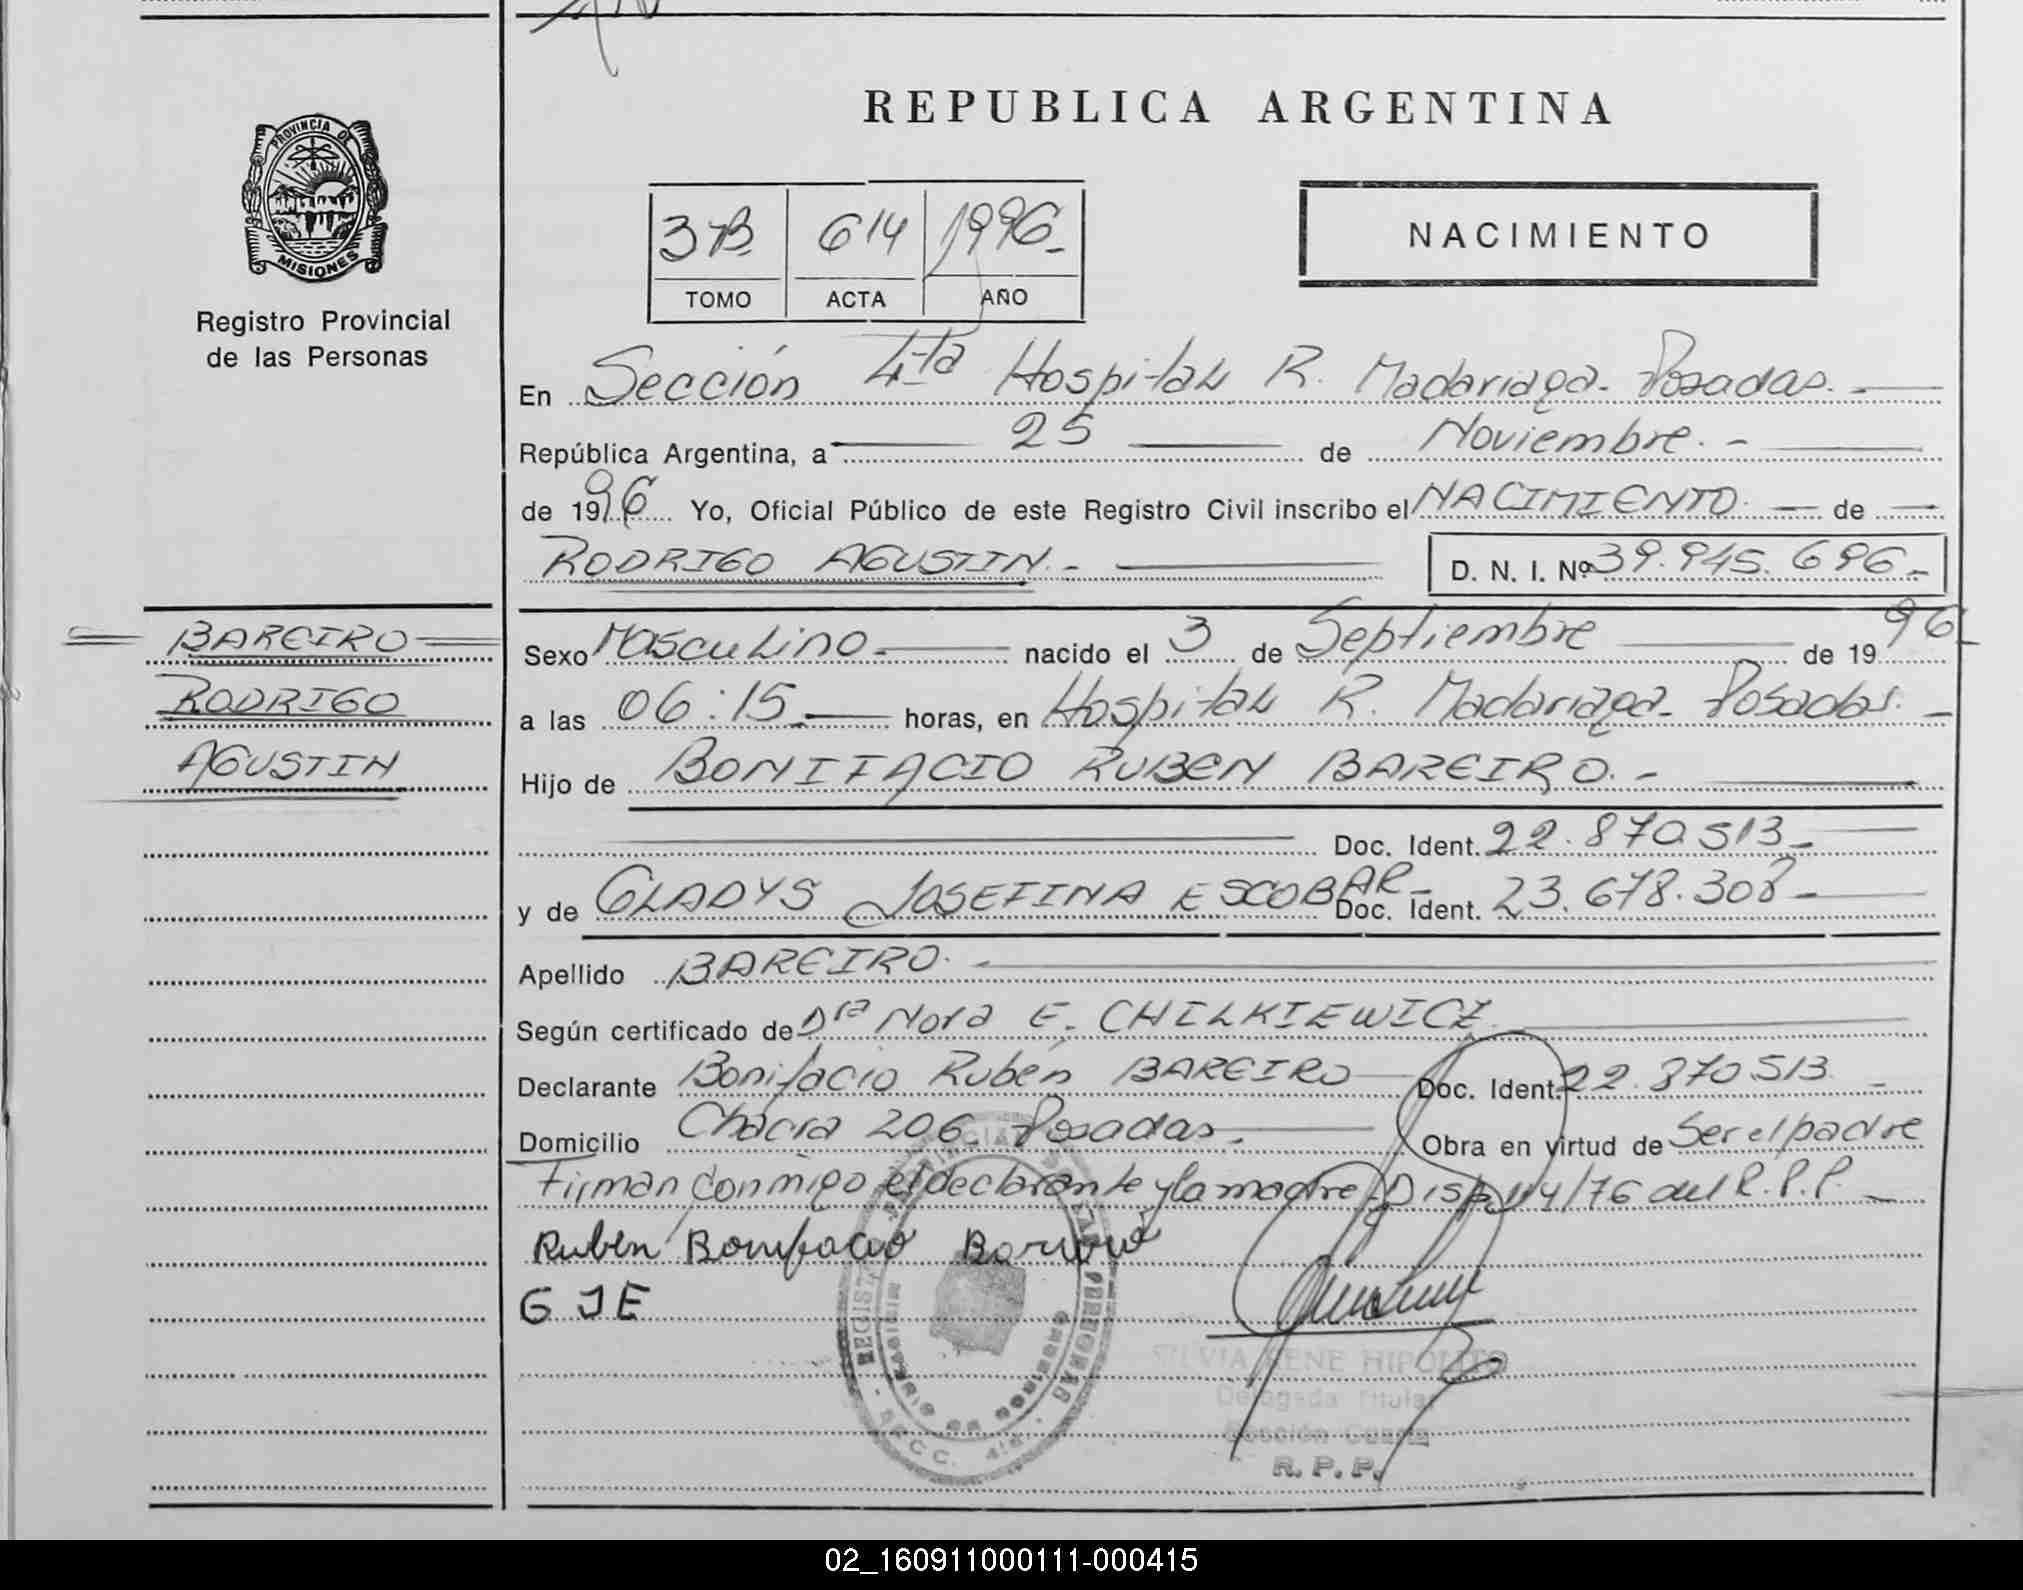 REPUBLICA ARGENTINA
PROVINCIA DE
MISIONES
Registro Provincial
de las Personas
3B 614 1996
TOMO ACTA AÑO
NACIMIENTO
En Sección 4ta Hospital R. Madariaga. Posadas.
República Argentina, a 25 de Noviembre.
de 1996 Yo, Oficial Público de este Registro Civil inscribo el NACIMIENTO de
RODRIGO AGUSTIN D. N. I. Nº 39.945.696
BAREIRO
RODRIGO
AGUSTIN
Sexo Masculino nacido el 3 de Septiembre de 1996
a las 06:15 horas, en Hospital R. Madariaga Posadas.
Hijo de BONIFACIO RUBEN BAREIRO.
Doc. Ident. 22.870.513
y de GLADYS JOSEFINA ESCOBAR Doc. Ident. 23.678.308
Apellido BAREIRO.
Según certificado de Dra Nora E. CHILKIEWICZ
Declarante Bonifacio Rubén BAREIRO Doc. Ident. 22.870513
Domicilio Chacra 206. Posadas. Obra en virtud de Ser el padre
Firman conmigo el declarante y la madre Disp. 114/76 del R.P.P.
Rubén Bonifacio Bareiro
GJE
SILVIA RENE HIPOLITO
Delegada Titular
Sección Cuarta
R. P. P.
02_160911000111-000415